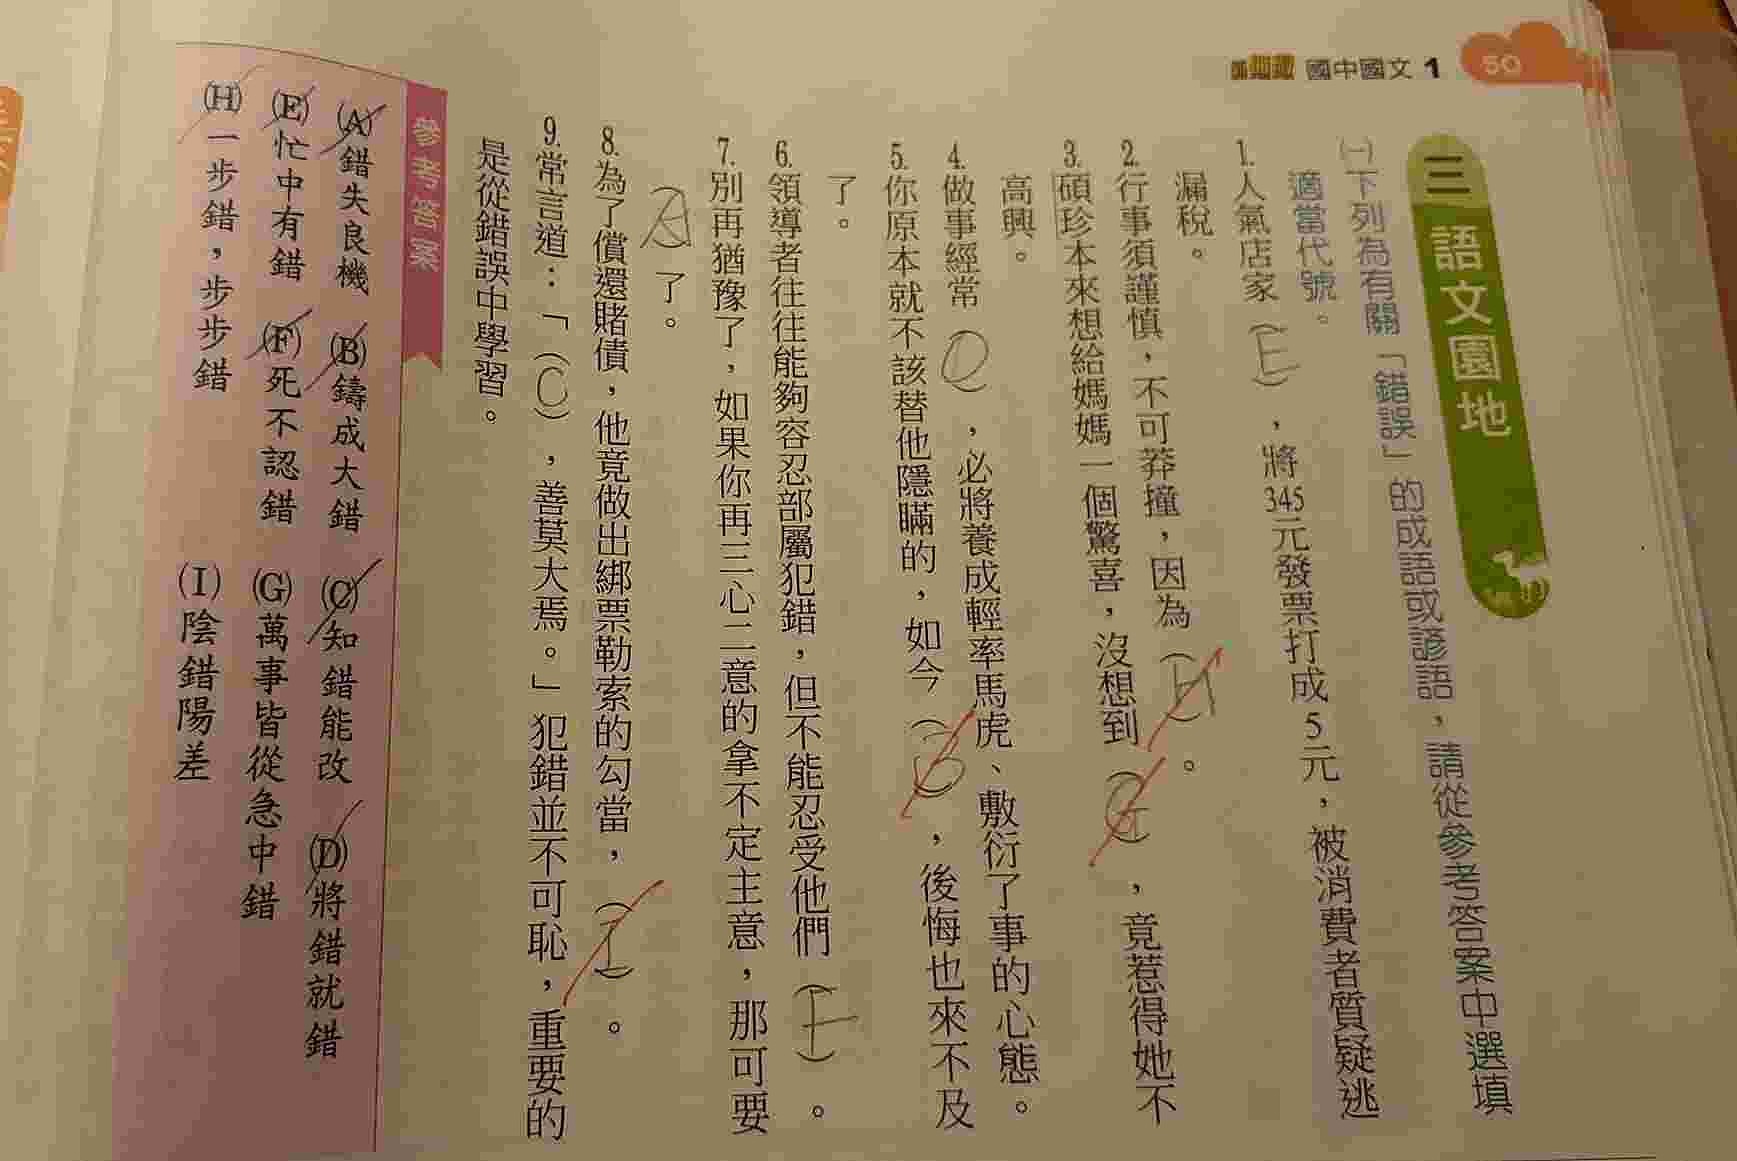 國中國文 1
50
三 語文園地
㈠下列為有關「錯誤」的成語或諺語，請從參考答案中選填
適當代號。
1.人氣店家（E），將345元發票打成5元，被消費者質疑逃
漏稅。
2.行事須謹慎，不可莽撞，因為（H）。
3.碩珍本來想給媽媽一個驚喜，沒想到（G），竟惹得她不
高興。
4.做事經常（D），必將養成輕率馬虎、敷衍了事的心態。
5.你原本就不該替他隱瞞的，如今（B），後悔也來不及
了。
6.領導者往往能夠容忍部屬犯錯，但不能忍受他們（F）。
7.別再猶豫了，如果你再三心二意的拿不定主意，那可要
（A）了。
8.為了償還賭債，他竟做出綁票勒索的勾當，（I）。
9.常言道：「（C），善莫大焉。」犯錯並不可恥，重要的
是從錯誤中學習。
參考答案
(A)錯失良機 (B)鑄成大錯 (C)知錯能改 (D)將錯就錯
(E)忙中有錯 (F)死不認錯 (G)萬事皆從急中錯
(H)一步錯，步步錯 (I)陰錯陽差